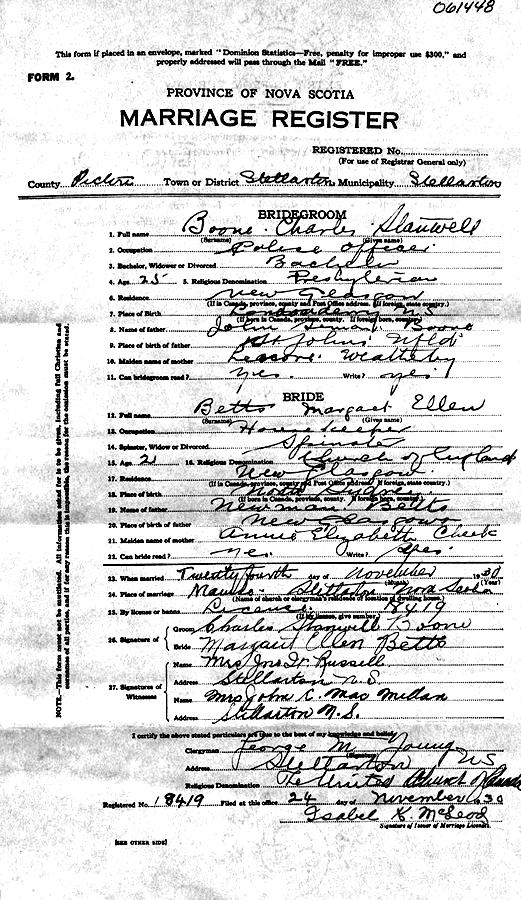 061448
This form if placed in an envelope, marked "Dominion Statistics—Free, penalty for improper use $300," and
properly addressed will pass through the Mail "FREE."
FORM 2.
PROVINCE OF NOVA SCOTIA
MARRIAGE REGISTER
REGISTERED No.
(For use of Registrar General only)
County Pictou Town or District Stellarton Municipality Stellarton
BRIDEGROOM
1. Full name Boone Charles Stanwell
(Surname) (Given name)
2. Occupation Police Officer
3. Bachelor, Widower or Divorced Bachelor
4. Age 25 5. Religious Denomination Presbyterian
6. Residence New Glasgow
(If in Canada, province, county and Post Office address. If foreign, state country.)
7. Place of Birth Londonderry NS
(If born in Canada, province, county. If foreign born, country.)
8. Name of father John Boone
9. Place of birth of father St Johns Nfld
10. Maiden name of mother Weatherby
11. Can bridegroom read? Yes Write? Yes
BRIDE
12. Full name Betts Margaret Ellen
(Surname) (Given name)
13. Occupation Housekeeper
14. Spinster, Widow or Divorced Spinster
15. Age 21 16. Religious Denomination Church of England
17. Residence New Glasgow
(If in Canada, province, county and Post Office address. If foreign, state country)
18. Place of birth North Sydney
19. Name of father Newman Betts
20. Place of birth of father New Glasgow
21. Maiden name of mother Annie Elizabeth Cheek
22. Can bride read? Yes. Write? Yes
23. When married Twenty fourth day of November 1930
(Year)
24. Place of marriage Manse Stellarton Nova Scotia
(Name of church or clergyman's residence or location of dwelling house.)
25. By license or banns License 18419
(If by license, give number)
26. Signature of Groom Charles Stanwell Boone
Bride Margaret Ellen Betts
27. Signatures of Witnesses
Name Mrs Jno. W. Russell
Address Stellarton N.S.
Name Mrs John C. MacMillan
Address Stellarton N.S.
I certify the above stated particulars are true to the best of my knowledge and belief.
Clergyman George M. Young
(Signature)
Address Stellarton NS
Religious Denomination The United Church of Canada
Registered No. 18419 Filed at this office 24 day of November 1930
Isabel C. McLeod
Signature of Issuer of Marriage Licenses.
[SEE OTHER SIDE]
NOTE.—This form must not be mutilated. All information asked for is to be given, including full Christian and
surnames of all parties, and if for any reason this is impossible, the reason for the omission must be stated.